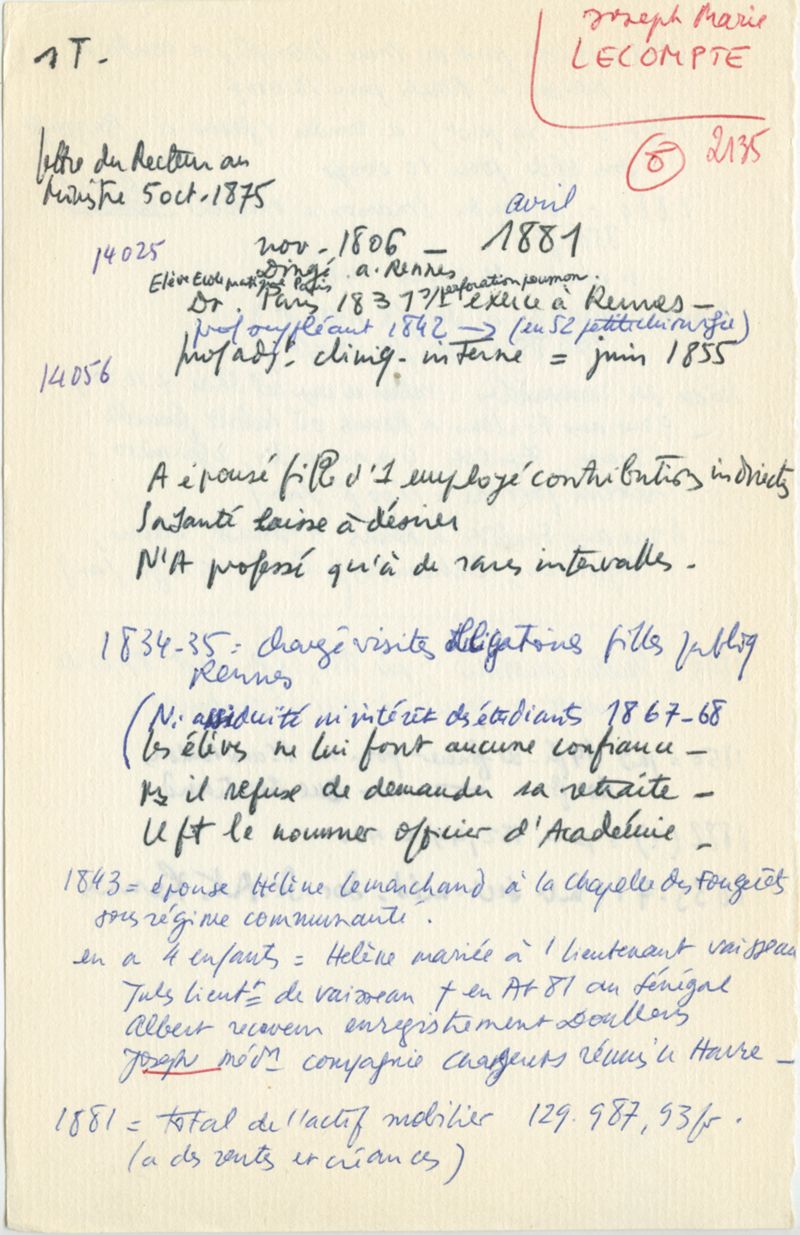 1 T.
Joseph Marie
LECOMPTE
6 2135
lettre du Recteur au
Ministre 5 oct. 1875
14025
avril
nov. 1806 – 1881
à Rennes
Elève Ecole pratique Paris perforation poumon.
Dr. Paris 1831 exerce à Rennes –
prof suppléant 1842 → (en 52 petite chirurgie)
14056
prof adjt. cliniq. interne = juin 1855
A épousé fille d'1 employé contributions indirectes
Sa santé laisse à désirer
N'A professé qu'à de rares intervalles.
1834-35 = chargé visites filles publiq
Rennes
(Ni assiduité ni intérêt des étudiants 1867-68
les élèves ne lui font aucune confiance –
il refuse de demander sa retraite –
le nommer officier d'Académie –
1843 = épouse Hélène Lemarchand à la Chapelle des Fougerets
sous régime communauté.
en a 4 enfants = Hélène mariée à 1 lieutenant vaisseau
Jules lieutt de vaisseau + en At 81 au Sénégal
Albert receveur enregistrement Doullens
Joseph médn compagnie chargeurs réunis Le Havre –
1881 = total de l'actif mobilier 129.987,93 fr.
(a des rentes et créances)